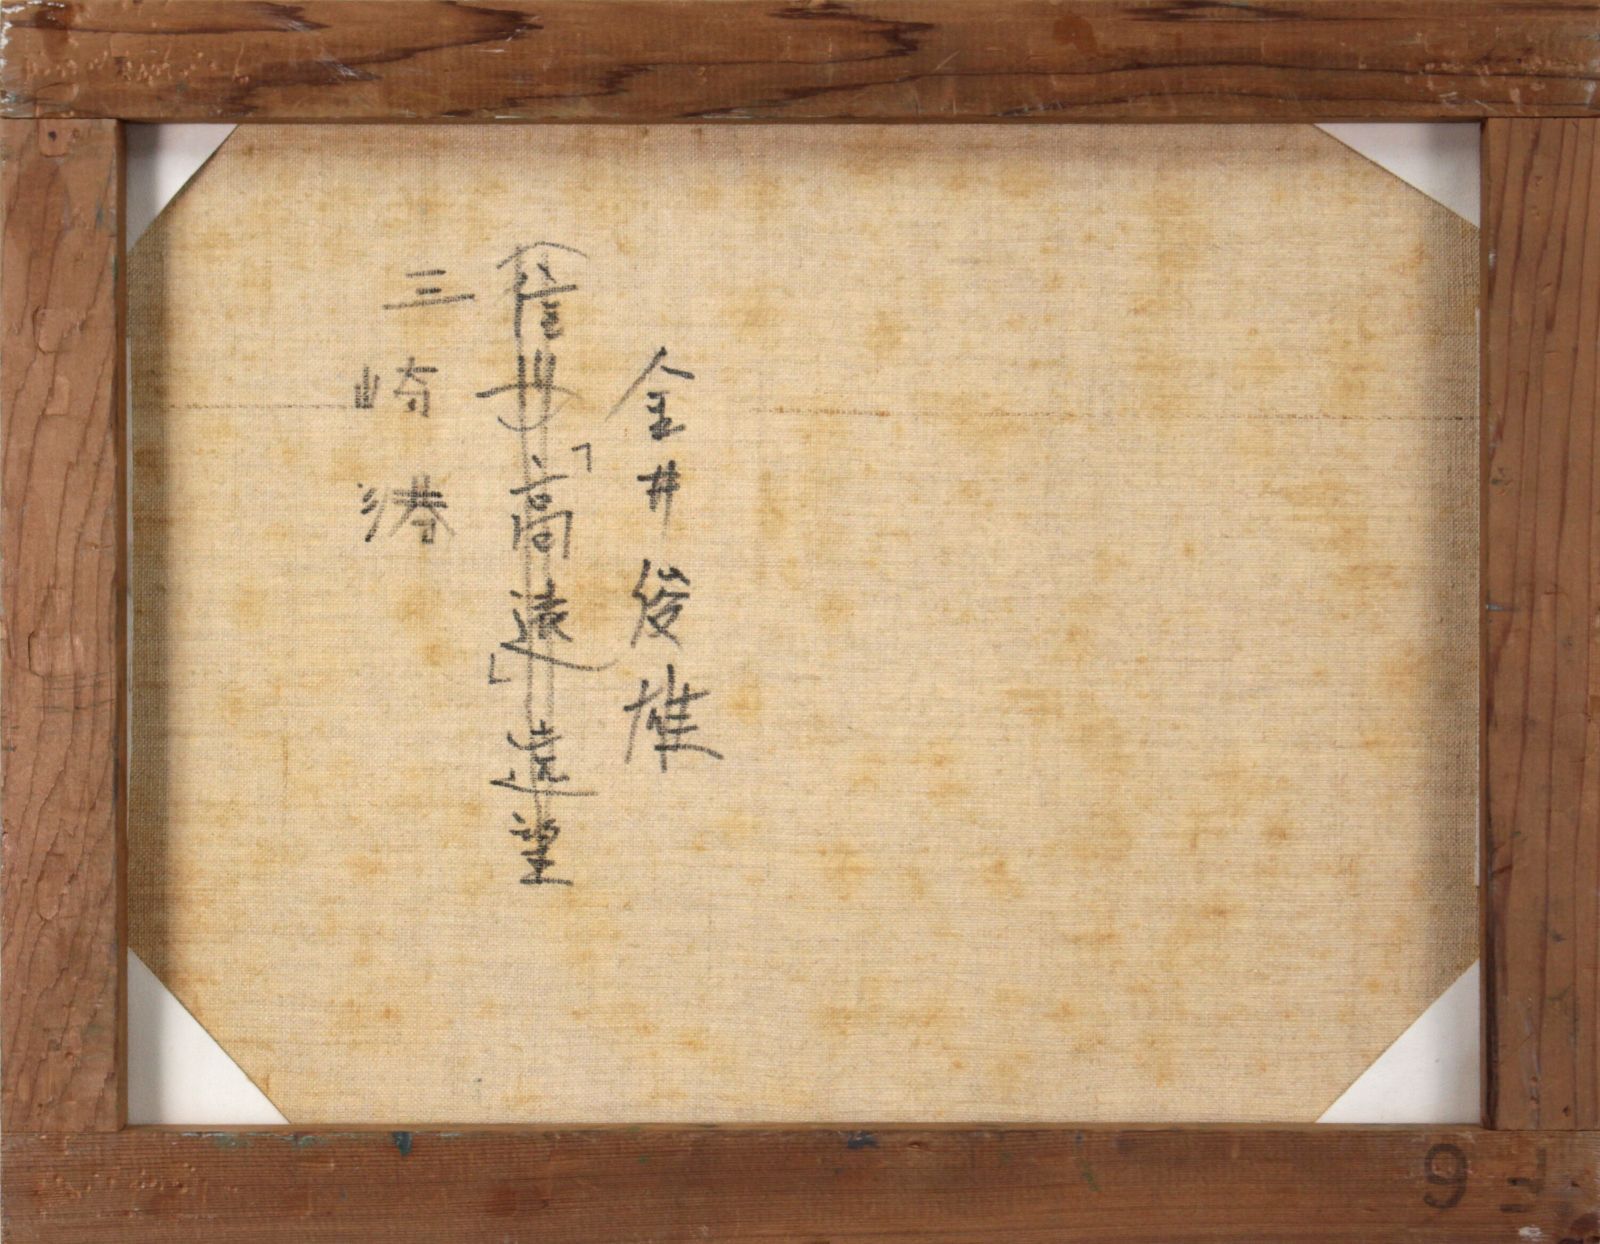 金井俊雄
(信州)「高遠」遠望
三崎港
F6